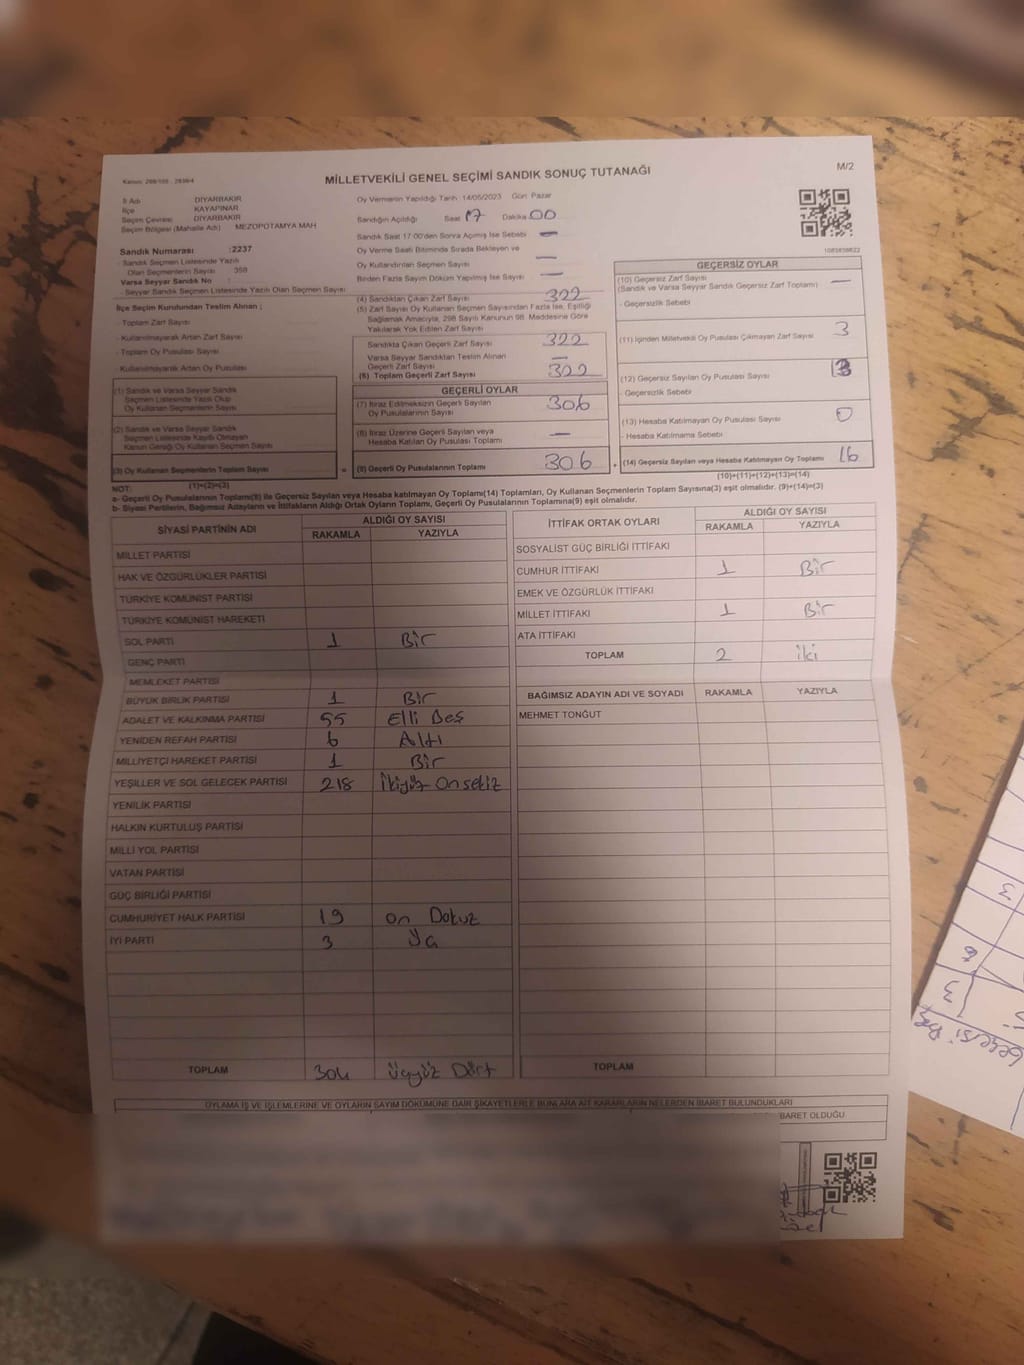 Kanun: 298/105 - 2839/4
MİLLETVEKİLİ GENEL SEÇİMİ SANDIK SONUÇ TUTANAĞI
M/2
İl Adı DİYARBAKIR
İlçe KAYAPINAR
Seçim Çevresi DİYARBAKIR
Seçim Bölgesi (Mahalle Adı) MEZOPOTAMYA MAH
Oy Vermenin Yapıldığı Tarih :14/05/2023 Gün: Pazar
Sandığın Açıldığı Saat 17 Dakika 00
Sandık Saat 17:00'den Sonra Açılmış İse Sebebi —
Oy Verme Saati Bitiminde Sırada Bekleyen ve
Oy Kullandırılan Seçmen Sayısı —
Birden Fazla Sayım Döküm Yapılmış İse Sayısı —
Sandık Numarası :2237
- Sandık Seçmen Listesinde Yazılı
Olan Seçmenlerin Sayısı : 358
Varsa Seyyar Sandık No :
- Seyyar Sandık Seçmen Listesinde Yazılı Olan Seçmen Sayısı
İlçe Seçim Kurulundan Teslim Alınan ;
- Toplam Zarf Sayısı
- Kullanılmayarak Artan Zarf Sayısı
- Toplam Oy Pusulası Sayısı
- Kullanılmayarak Artan Oy Pusulası
(1) Sandık ve Varsa Seyyar Sandık
Seçmen Listesinde Yazılı Olup
Oy Kullanan Seçmenlerin Sayısı
(2) Sandık ve Varsa Seyyar Sandık
Seçmen Listesinde Kayıtlı Olmayan
Kanun Gereği Oy Kullanan Seçmen Sayısı
(3) Oy Kullanan Seçmenlerin Toplam Sayısı
(1)+(2)=(3)
(4) Sandıktan Çıkan Zarf Sayısı 322
(5) Zarf Sayısı Oy Kullanan Seçmen Sayısından Fazla İse, Eşitliği
Sağlamak Amacıyla, 298 Sayılı Kanunun 98. Maddesine Göre
Yakılarak Yok Edilen Zarf Sayısı
Sandıkta Çıkan Geçerli Zarf Sayısı 322
Varsa Seyyar Sandıktan Teslim Alınan
Geçerli Zarf Sayısı —
(6) Toplam Geçerli Zarf Sayısı 322
GEÇERLİ OYLAR
(7) İtiraz Edilmeksizin Geçerli Sayılan
Oy Pusulalarının Sayısı 306
(8) İtiraz Üzerine Geçerli Sayılan veya
Hesaba Katılan Oy Pusulası Toplamı —
= (9) Geçerli Oy Pusulalarının Toplamı 306
1083838622
GEÇERSİZ OYLAR
(10) Geçersiz Zarf Sayısı
(Sandık ve Varsa Seyyar Sandık Geçersiz Zarf Toplamı) —
- Geçersizlik Sebebi
(11) İçinden Milletvekili Oy Pusulası Çıkmayan Zarf Sayısı 3
(12) Geçersiz Sayılan Oy Pusulası Sayısı
- Geçersizlik Sebebi
(13) Hesaba Katılmayan Oy Pusulası Sayısı 0
- Hesaba Katılmama Sebebi
+ (14) Geçersiz Sayılan veya Hesaba Katılmayan Oy Toplamı 16
(10)+(11)+(12)+(13)=(14)
NOT:
a- Geçerli Oy Pusulalarının Toplamı(9) ile Geçersiz Sayılan veya Hesaba katılmayan Oy Toplamı(14) Toplamları, Oy Kullanan Seçmenlerin Toplam Sayısına(3) eşit olmalıdır. (9)+(14)=(3)
b- Siyasi Partilerin, Bağımsız Adayların ve İttifakların Aldığı Ortak Oyların Toplamı, Geçerli Oy Pusulalarının Toplamına(9) eşit olmalıdır.
SİYASİ PARTİNİN ADI ALDIĞI OY SAYISI
RAKAMLA YAZIYLA
MİLLET PARTİSİ
HAK VE ÖZGÜRLÜKLER PARTİSİ
TÜRKİYE KOMÜNİST PARTİSİ
TÜRKİYE KOMÜNİST HAREKETİ
SOL PARTİ 1 Bir
GENÇ PARTİ
MEMLEKET PARTİSİ
BÜYÜK BİRLİK PARTİSİ 1 Bir
ADALET VE KALKINMA PARTİSİ 55 Elli Beş
YENİDEN REFAH PARTİSİ 6 Altı
MİLLİYETÇİ HAREKET PARTİSİ 1 Bir
YEŞİLLER VE SOL GELECEK PARTİSİ 218 İkiyüz onsekiz
YENİLİK PARTİSİ
HALKIN KURTULUŞ PARTİSİ
MİLLİ YOL PARTİSİ
VATAN PARTİSİ
GÜÇ BİRLİĞİ PARTİSİ
CUMHURİYET HALK PARTİSİ 19 on Dokuz
İYİ PARTİ 3 Üç
TOPLAM 304 Üçyüz Dört
İTTİFAK ORTAK OYLARI ALDIĞI OY SAYISI
RAKAMLA YAZIYLA
SOSYALİST GÜÇ BİRLİĞİ İTTİFAKI
CUMHUR İTTİFAKI 1 Bir
EMEK VE ÖZGÜRLÜK İTTİFAKI
MİLLET İTTİFAKI 1 Bir
ATA İTTİFAKI
TOPLAM 2 iki
BAĞIMSIZ ADAYIN ADI VE SOYADI RAKAMLA YAZIYLA
MEHMET TONĞUT
TOPLAM
OYLAMA İŞ VE İŞLEMLERİNE VE OYLARIN SAYIM DÖKÜMÜNE DAİR ŞİKAYETLERLE BUNLARA AİT KARARLARIN NELERDEN İBARET BULUNDUKLARI
BARET OLDUĞU
3
6
3